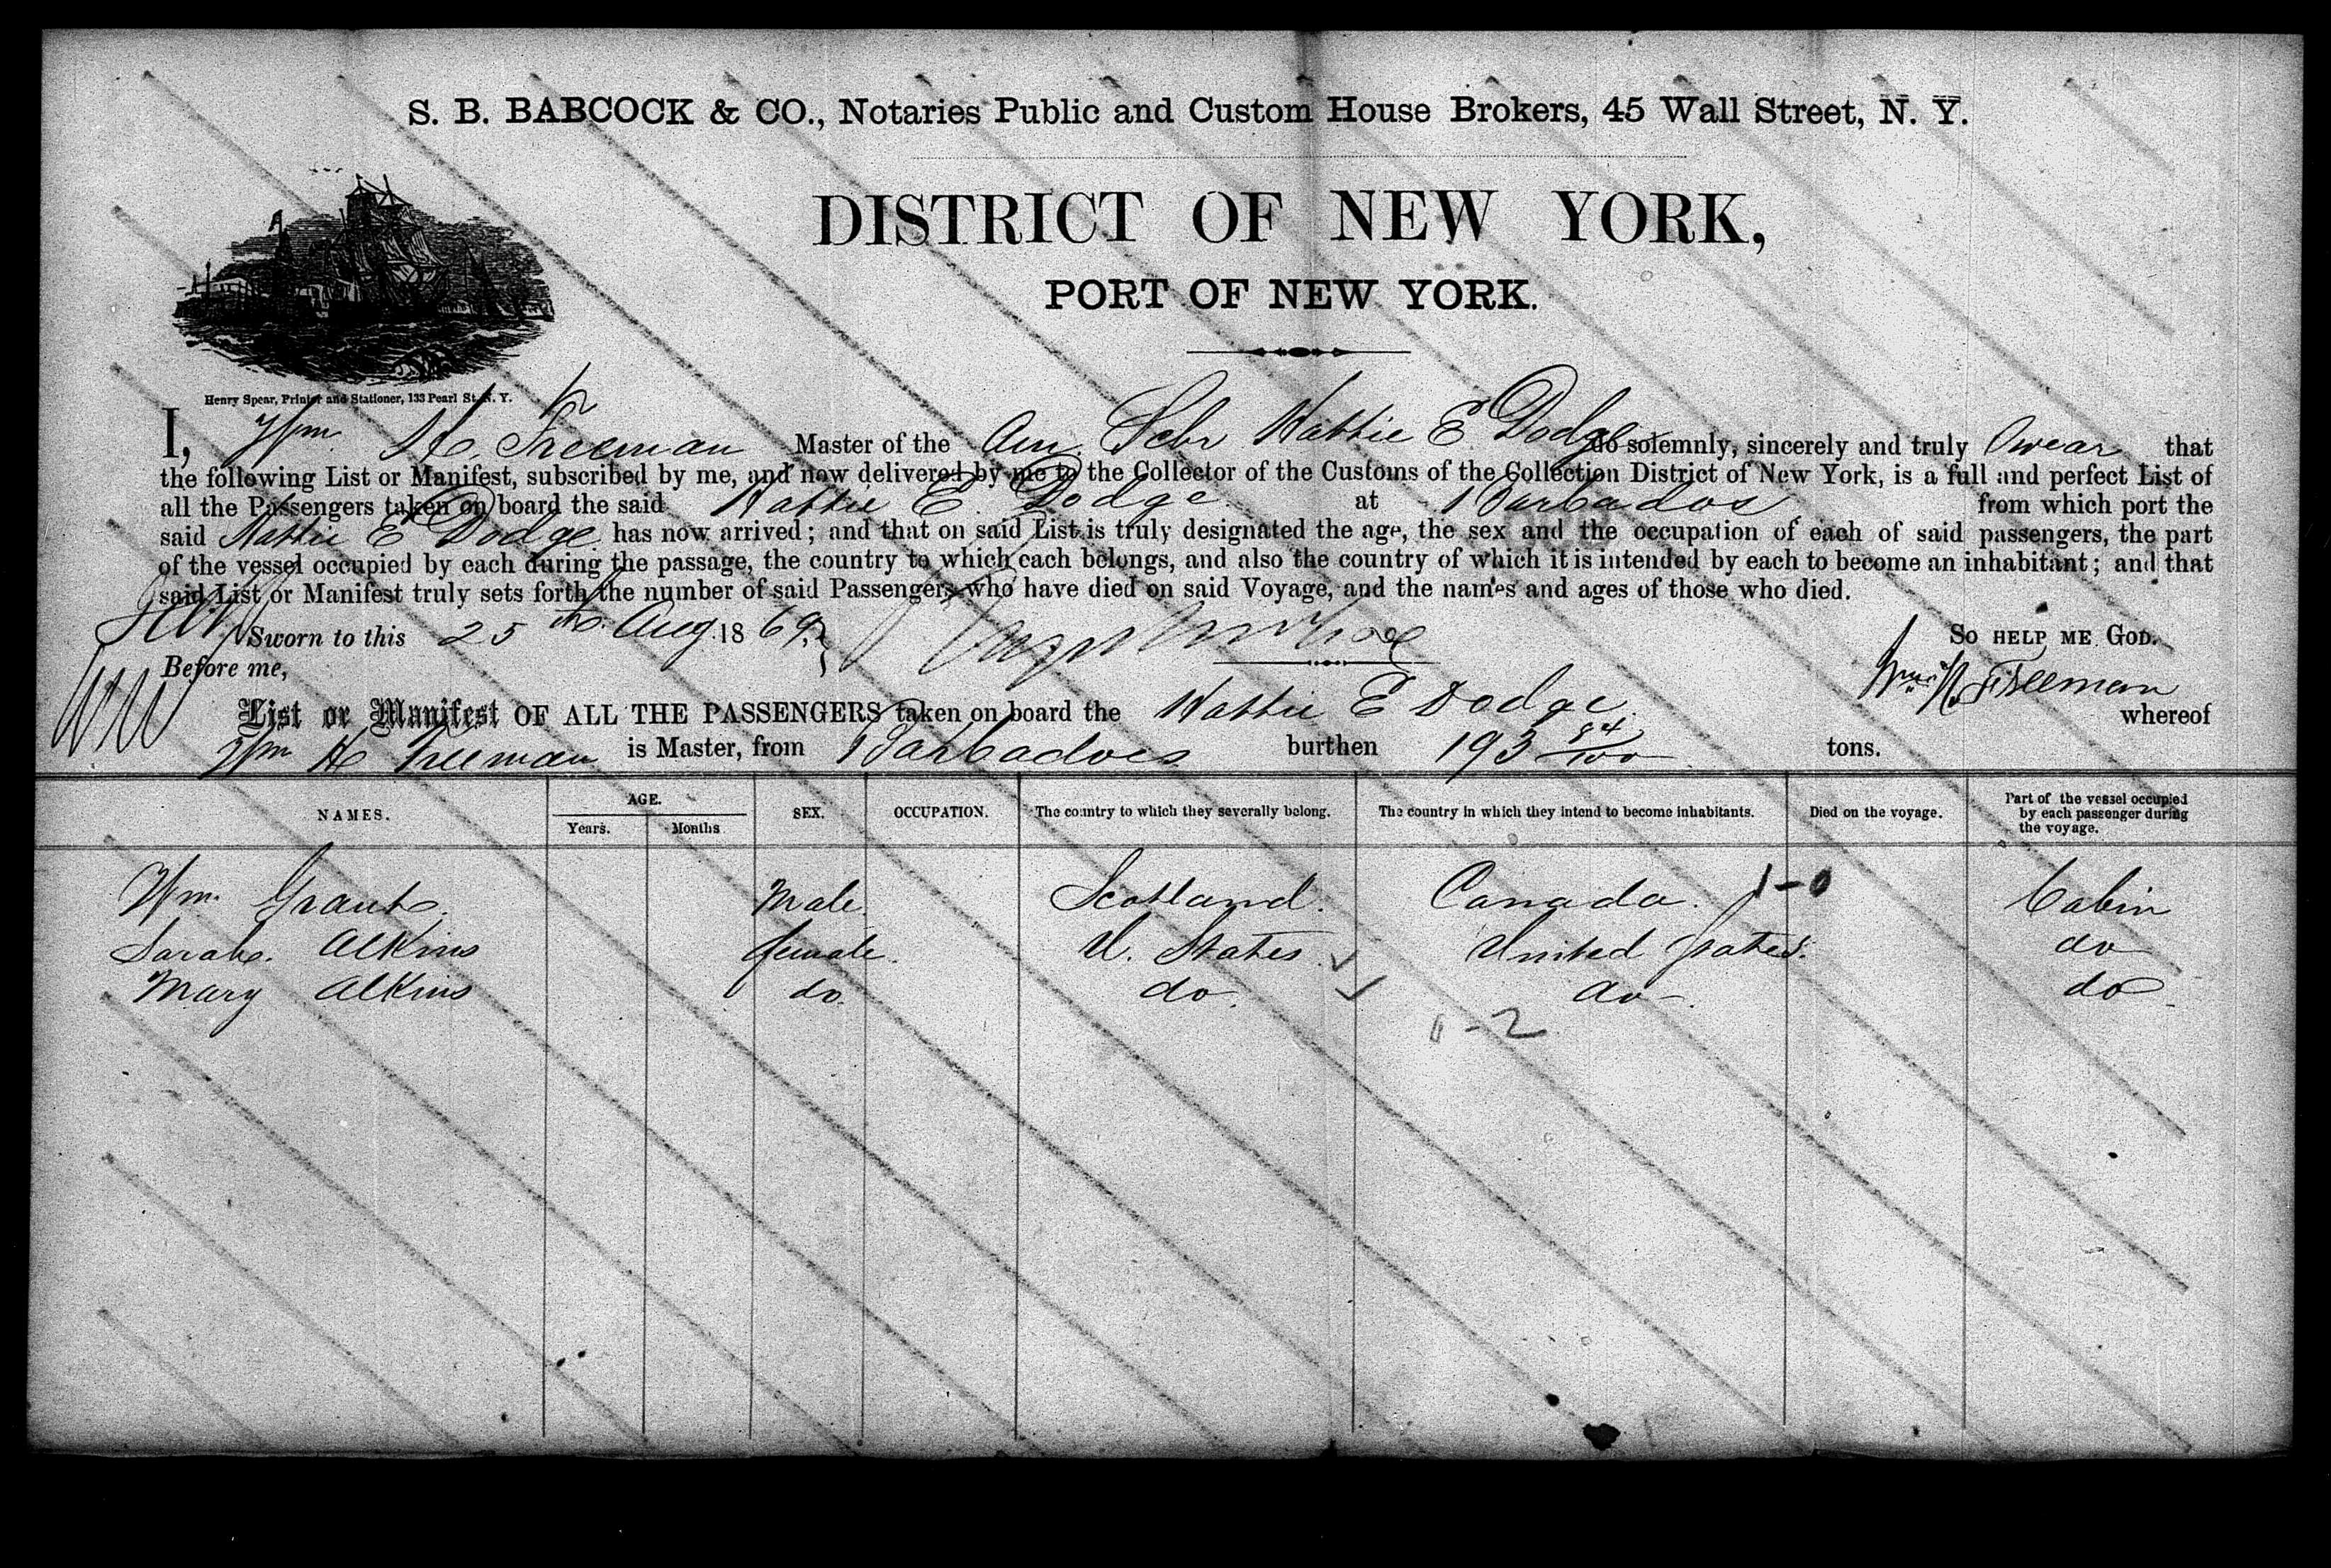 S. B. BABCOCK & CO., Notaries Public and Custom House Brokers, 45 Wall Street, N. Y.
DISTRICT OF NEW YORK,
PORT OF NEW YORK.
Henry Spear, Printer and Stationer, 133 Pearl St. N. Y.
I, Wm H. Freeman Master of the Am. Schr Hattie E Dodge do solemnly, sincerely and truly swear that
the following List or Manifest, subscribed by me, and now delivered by me to the Collector of the Customs of the Collection District of New York, is a full and perfect List of
all the Passengers taken on board the said Hattie E. Dodge at Barbados from which port the
said Hattie E Dodge has now arrived; and that on said List is truly designated the age, the sex and the occupation of each of said passengers, the part
of the vessel occupied by each during the passage, the country to which each belongs, and also the country of which it is intended by each to become an inhabitant; and that
said List or Manifest truly sets forth the number of said Passengers who have died on said Voyage, and the names and ages of those who died.
Sworn to this 25th Aug. 1869. SO HELP ME GOD.
Before me, Wm H. Freeman
List or Manifest OF ALL THE PASSENGERS taken on board the Hattie E Dodge whereof
Wm H Freeman is Master, from Barbadoes burthen 193 84/100 tons.
NAMES. AGE. Years. Months SEX. OCCUPATION. The country to which they severally belong. The country in which they intend to become inhabitants. Died on the voyage. Part of the vessel occupied by each passenger during the voyage.
Wm. Grant. Male. Scotland. Canada. 1-0 Cabin
Sarah. Alkins female. U. States. United States. do
Mary Alkins do. do. do. do
0-2